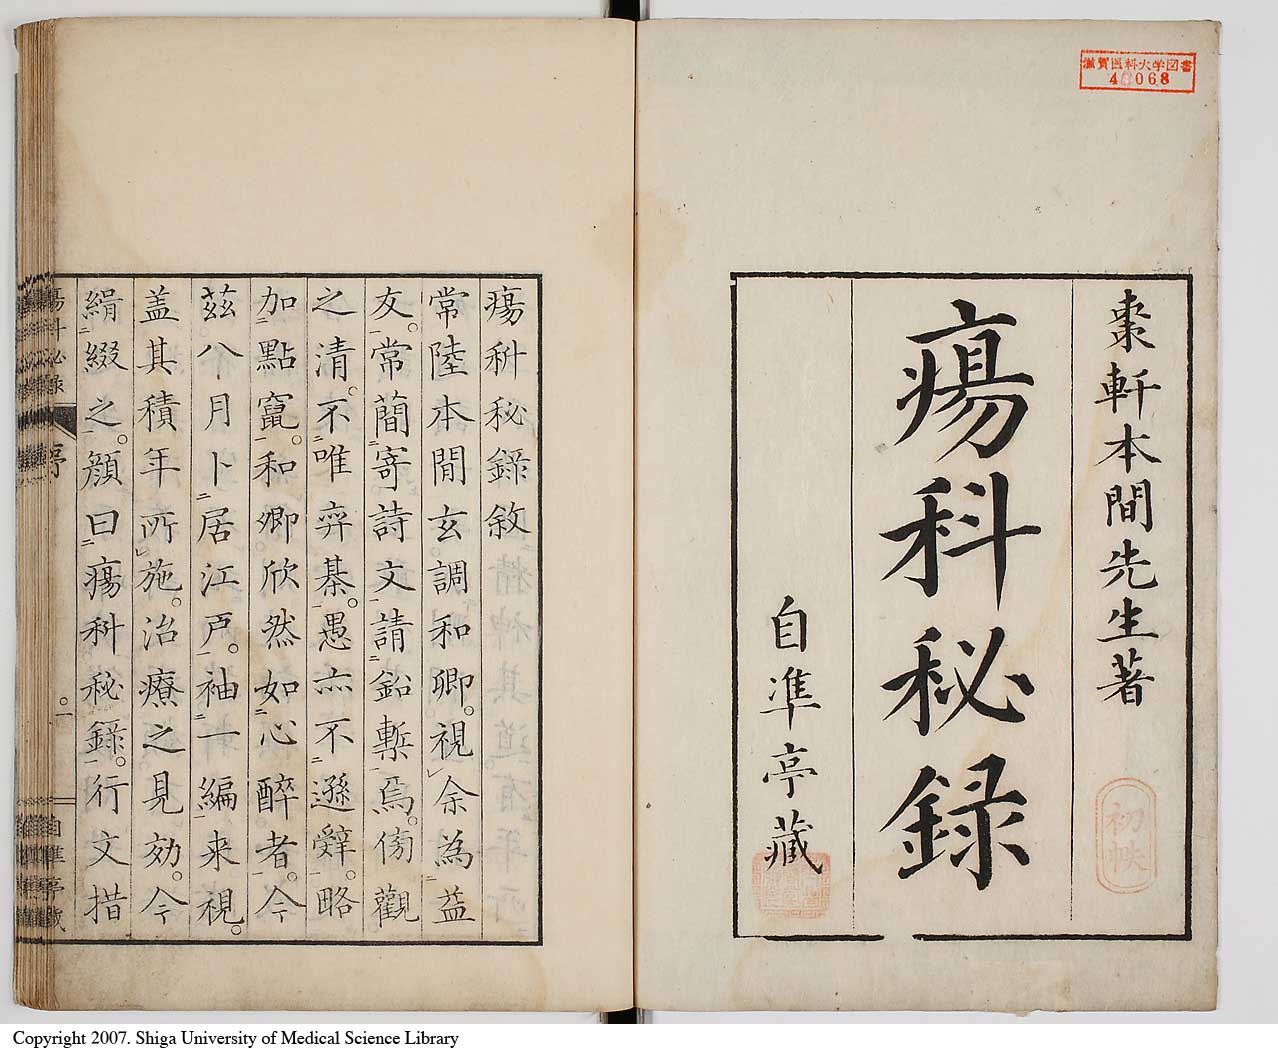 滋賀医科大学図書
棗軒本間先生著
初帙
瘍科秘録
自準亭藏
瘍科秘錄敘
常陸本間玄調和卿。視余為益
友。常蕳寄詩文請鉛槧焉。傍觀
之清。不唯弈棊。愚亦不遜辤。略
加點竄。和卿欣然如心醉者。今
茲八月卜居江戸。袖一編来視。
盖其積年所施。治療之見効。今
緝綴之。顔曰瘍科秘錄。行文措
瘍科秘録
序
一
自準亭藏
Copyright 2007. Shiga University of Medical Science Library